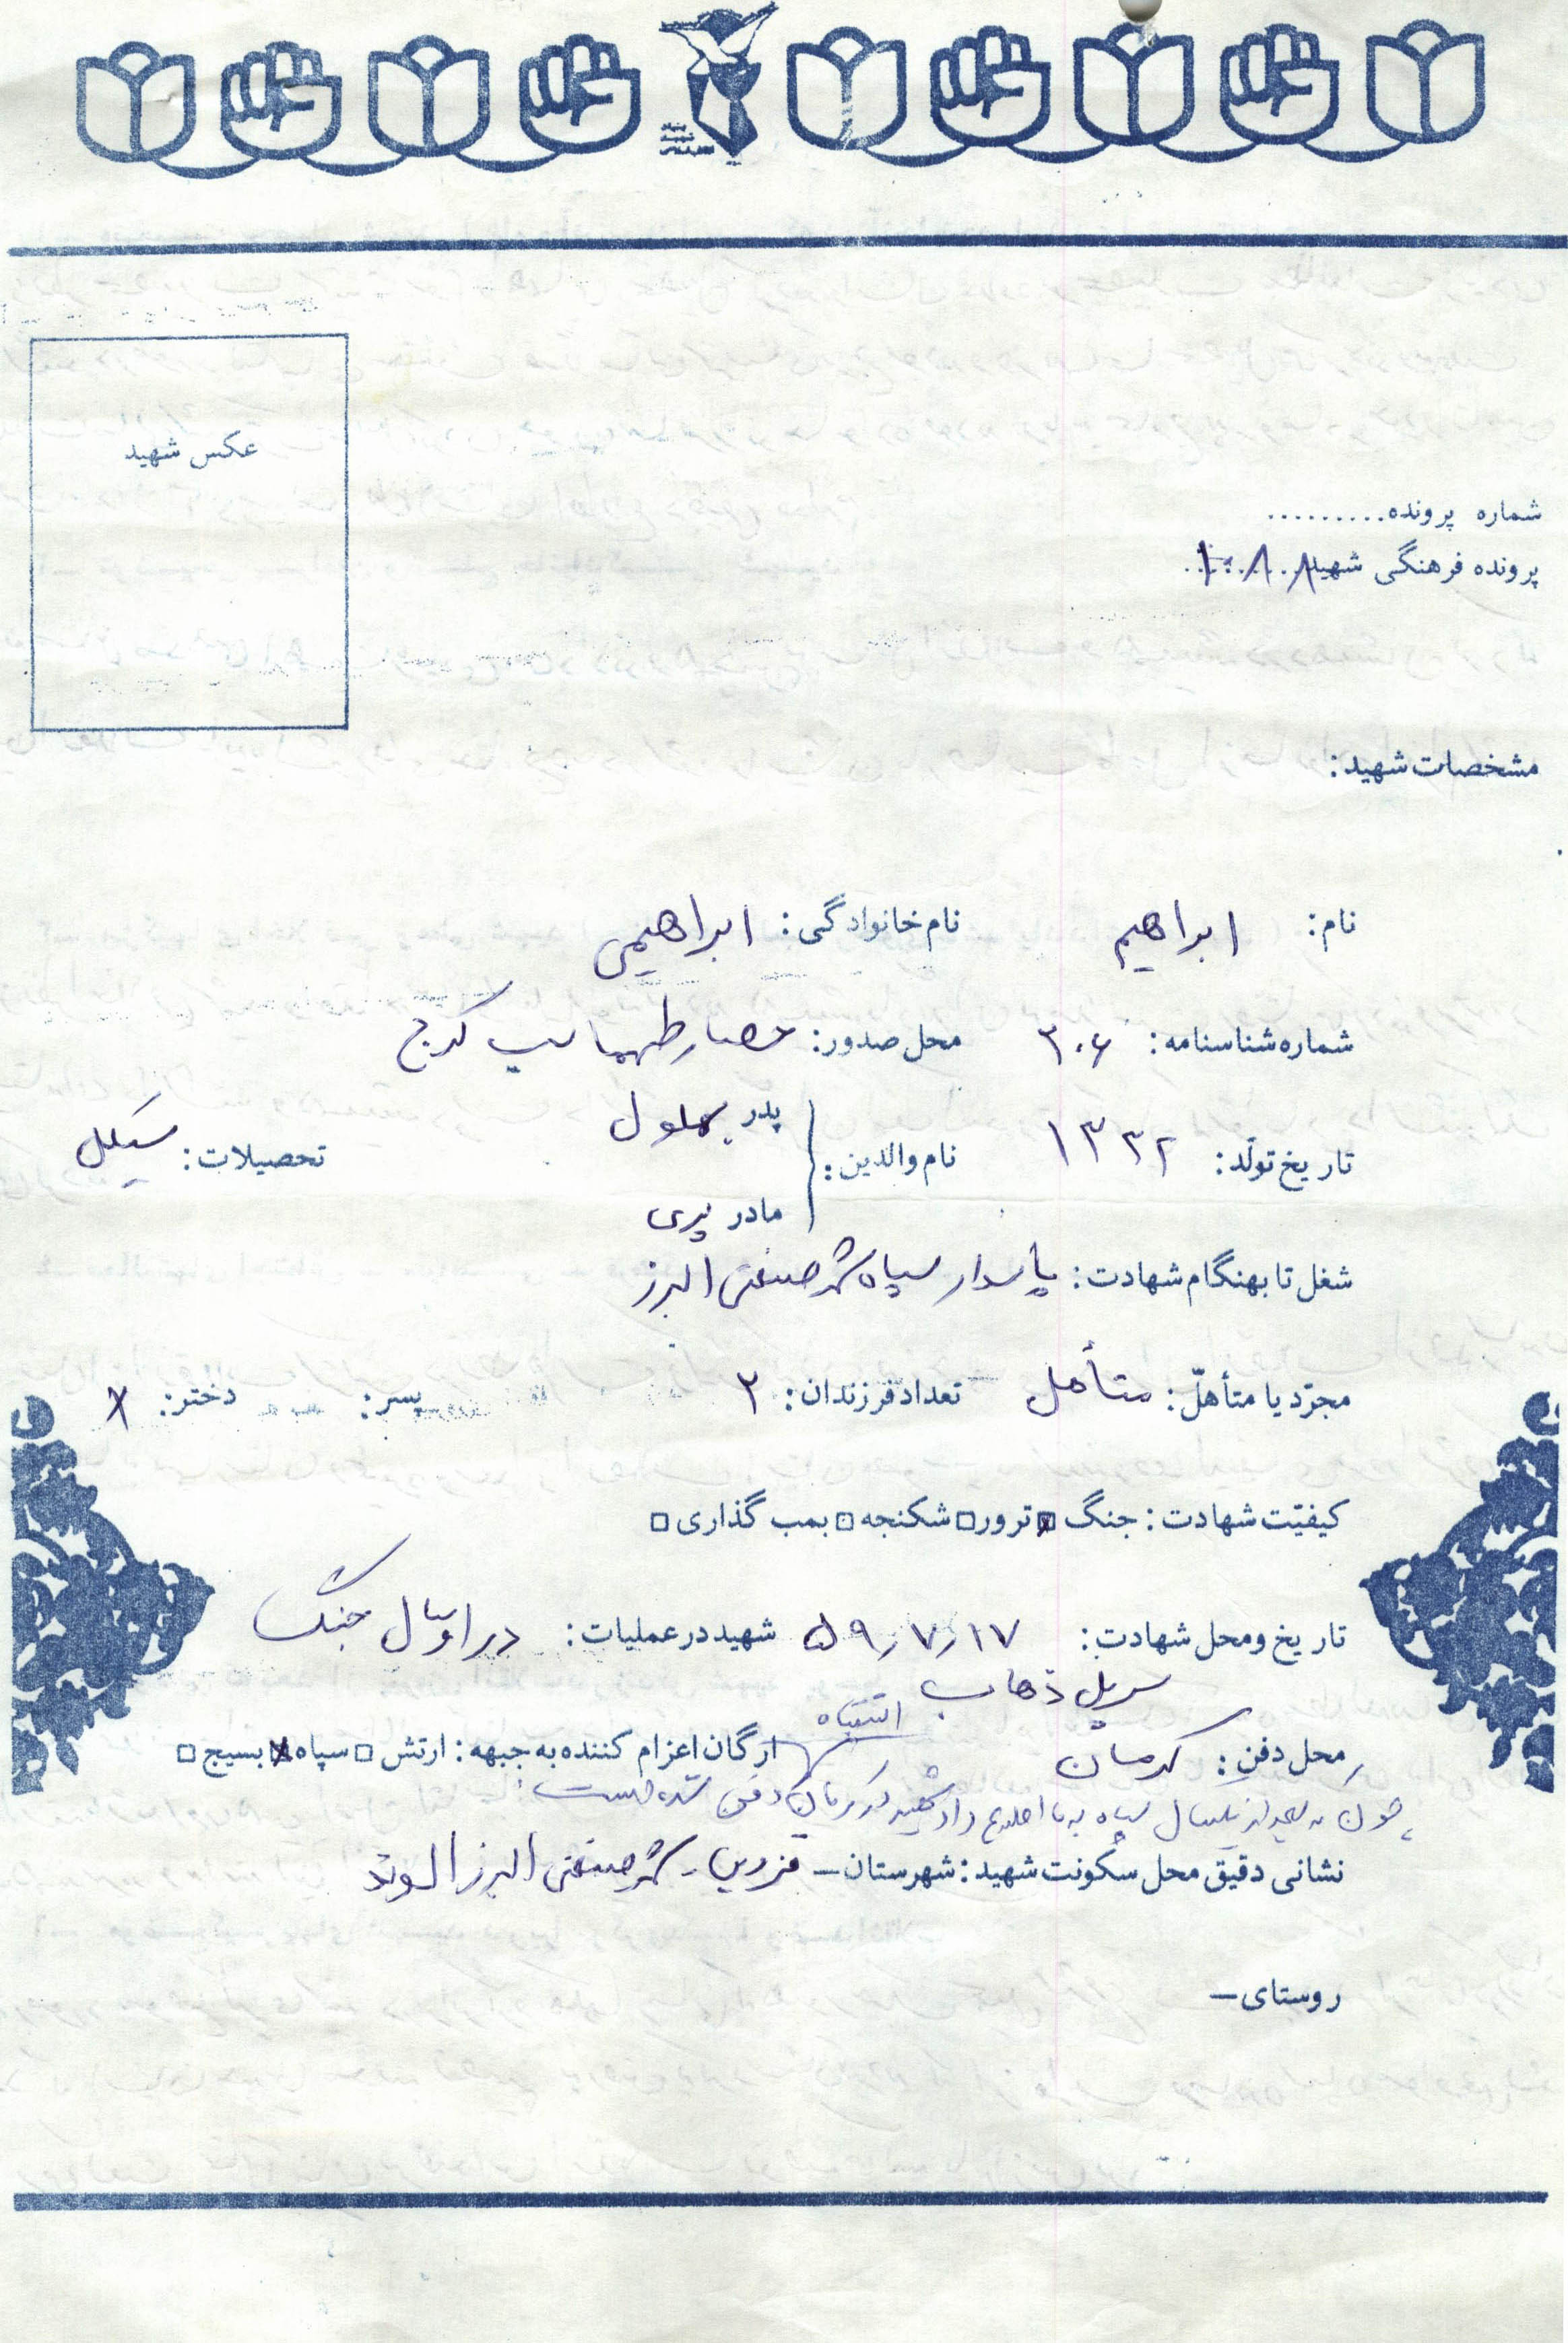 بنیاد شهید انقلاب اسلامی
عکس شهید
شماره پرونده.........
پرونده فرهنگی شهید ۱۰۸۸
مشخصات شهید:
نام: ابراهیم نام خانوادگی: ابراهیمی
شماره شناسنامه: ۳۰۶ محل صدور: حصار طهماسب کرج
تاریخ تولّد: ۱۳۳۲ نام والدین: پدر بهلول تحصیلات: سیکل
مادر پری
شغل تا بهنگام شهادت: پاسدار سپاه شهر صنعتی البرز
مجرّد یا متأهلّ: متأهل تعداد فرزندان: ۲ پسر: دختر: x
کیفیّت شهادت: جنگ ☒ ترور □ شکنجه □ بمب گذاری □
تاریخ و محل شهادت: ۵۹/۷/۱۷ شهید در عملیات: در اوایل جنگ
سرپل ذهاب
اشتباه
محل دفن: کرمان ارگان اعزام کننده به جبهه: ارتش □ سپاه ☒ بسیج □
چون که بعد از یکسال سپاه به ما اطلاع داد شهید در کرمان دفن شده است
نشانی دقیق محل سکونت شهید: شهرستان – قزوین - شهر صنعتی البرز الوند
روستای –